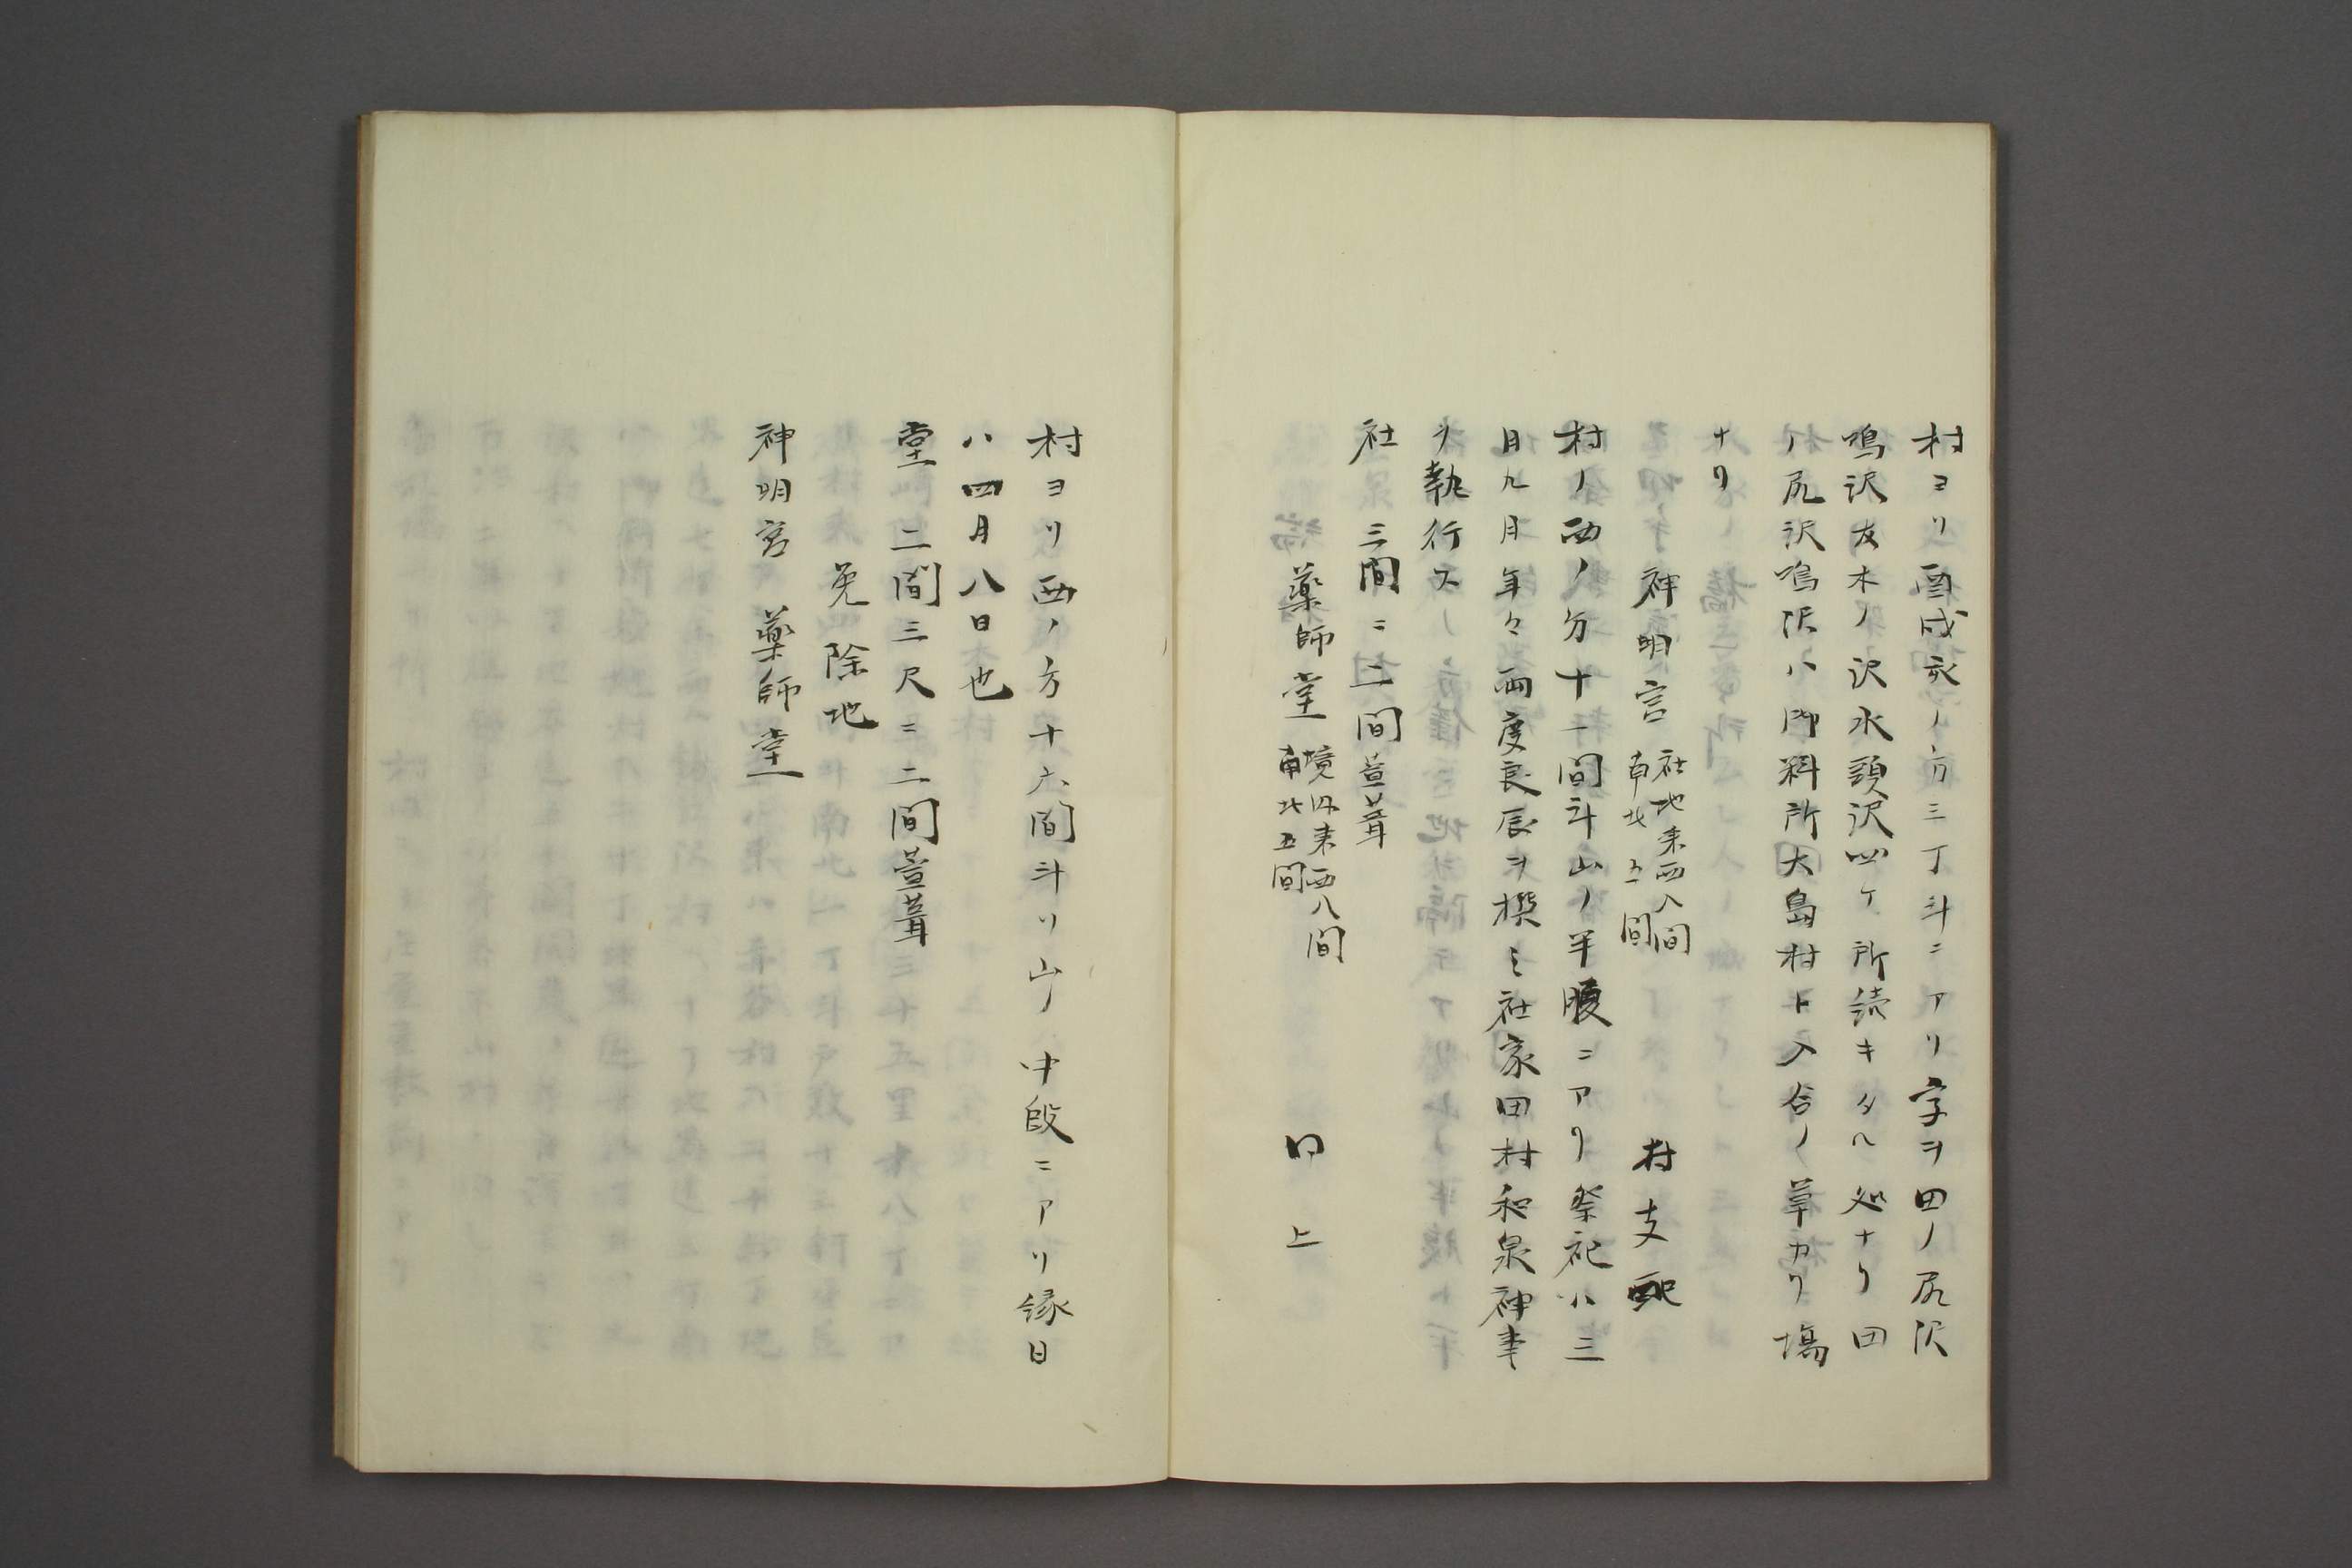 村ヨリ酉戌亥ノ方三丁斗ニアリ字ヲ田ノ尻沢
鳴沢友木ノ沢水頭沢四ケ所続キタル処ナリ田
ノ尻沢鳴沢ハ御料所大島村ト入合ノ草カリ場
ナリ
神明宮 社地東西八間 南北五間 村支配
村ノ西ノ方十一間斗山ノ半腹ニアリ祭祀ハ三
月九月年々両度良辰ヲ撰ミ社家田村和泉神事
ヲ執行ス
社 三間ニ二間萱葺
薬師堂 境内東西八間 南北五間 同上
村ヨリ西ノ方十六間斗リ山ノ中段ニアリ縁日
ハ四月八日也
堂 二間三尺ニ二間萱葺
免除地
神明宮 薬師堂